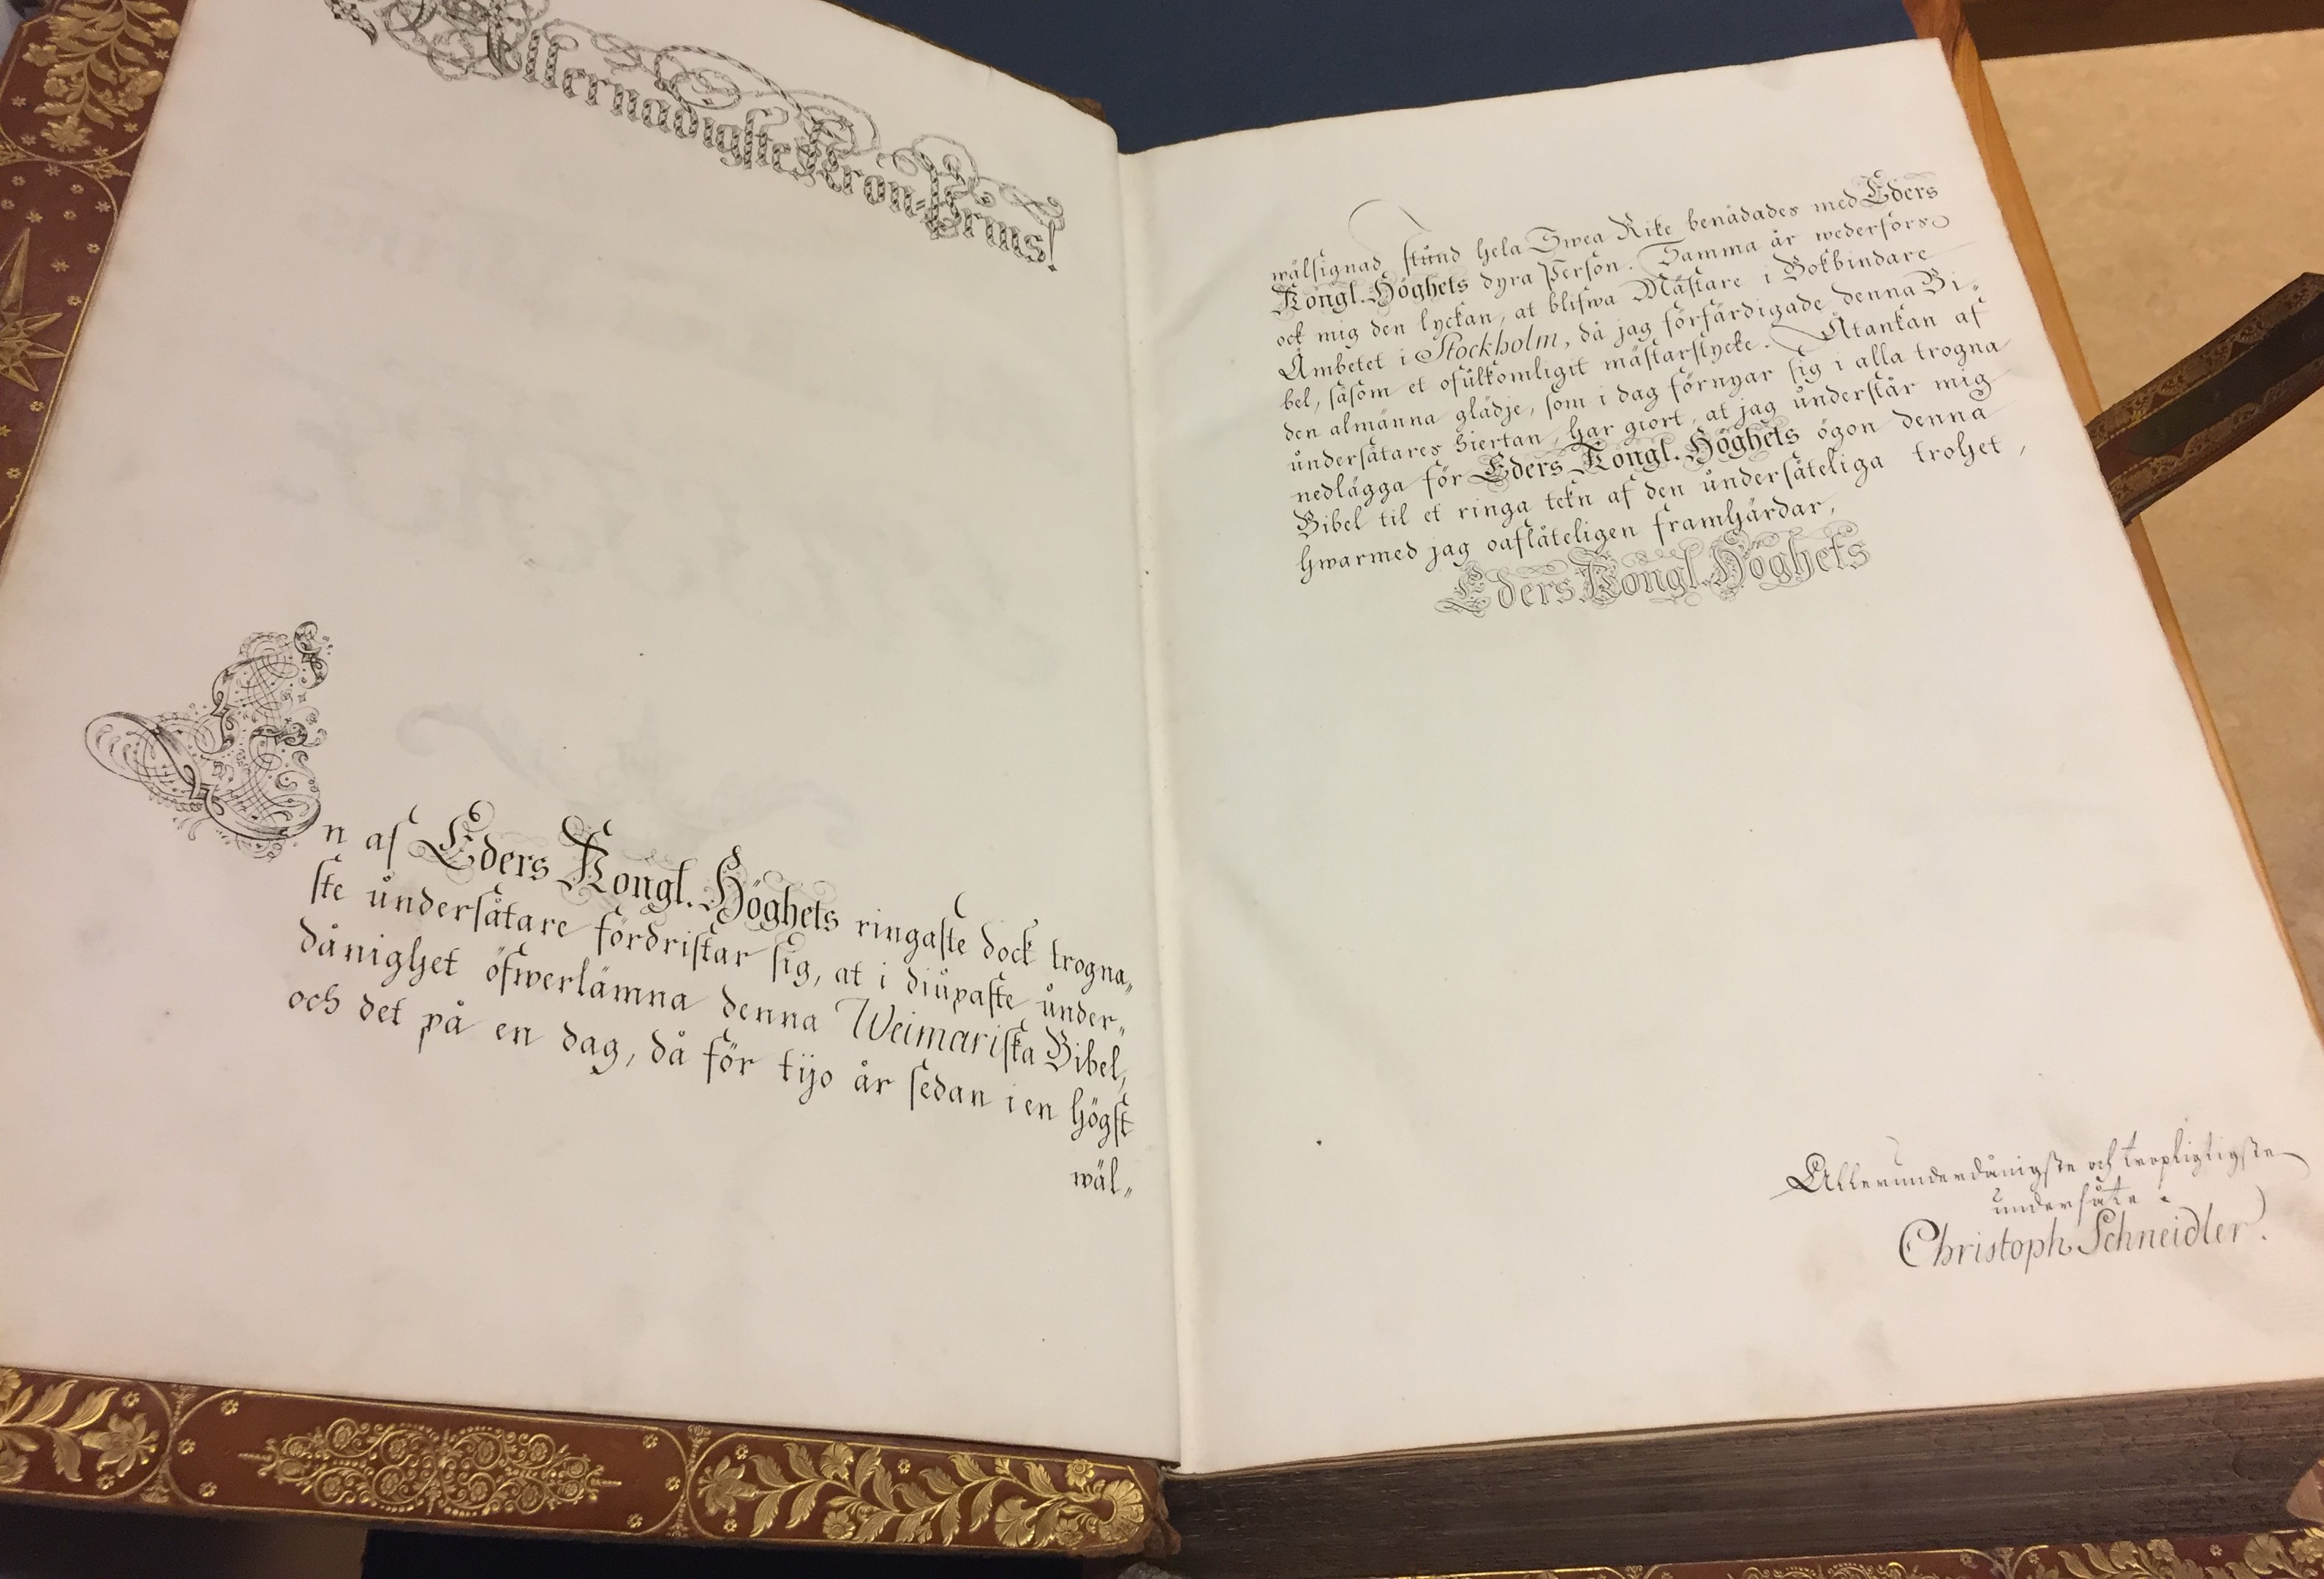 Allernådigste Kron-Prins!
En af Eders Kongl. Höghets ringaste dock trogna„
ste undersåtare fördristar sig, at i diupaste under„
dånighet öfwerlämna denna Weimariska Bibel,
och det på en dag, då för tijo år sedan i en högst
wäl„
wälsignad stund hela Swea Rike benådades med Eders
Kongl. Höghets dyra Person. Samma år wederfors
ock mig den lyckan, at blifwa Mästare i Bokbindare
Ämbetet i Stockholm, då jag förfärdigade denna Bi„
bel, såsom et ofulkomligit mästarstycke. Åtankan af
den almänna glädje, som i dag förnyar sig i alla trogna
undersåtares hiertan, har giort, at jag understår mig
nedlägga för Eders Kongl. Höghets ögon denna
Bibel til et ringa tekn af den undersåteliga trohet,
hwarmed jag oaflåteligen framhärdar,
Eders Kongl. Höghets
Allerunderdånigste och tropligtigste
undersåte.
Christoph Schneidler.